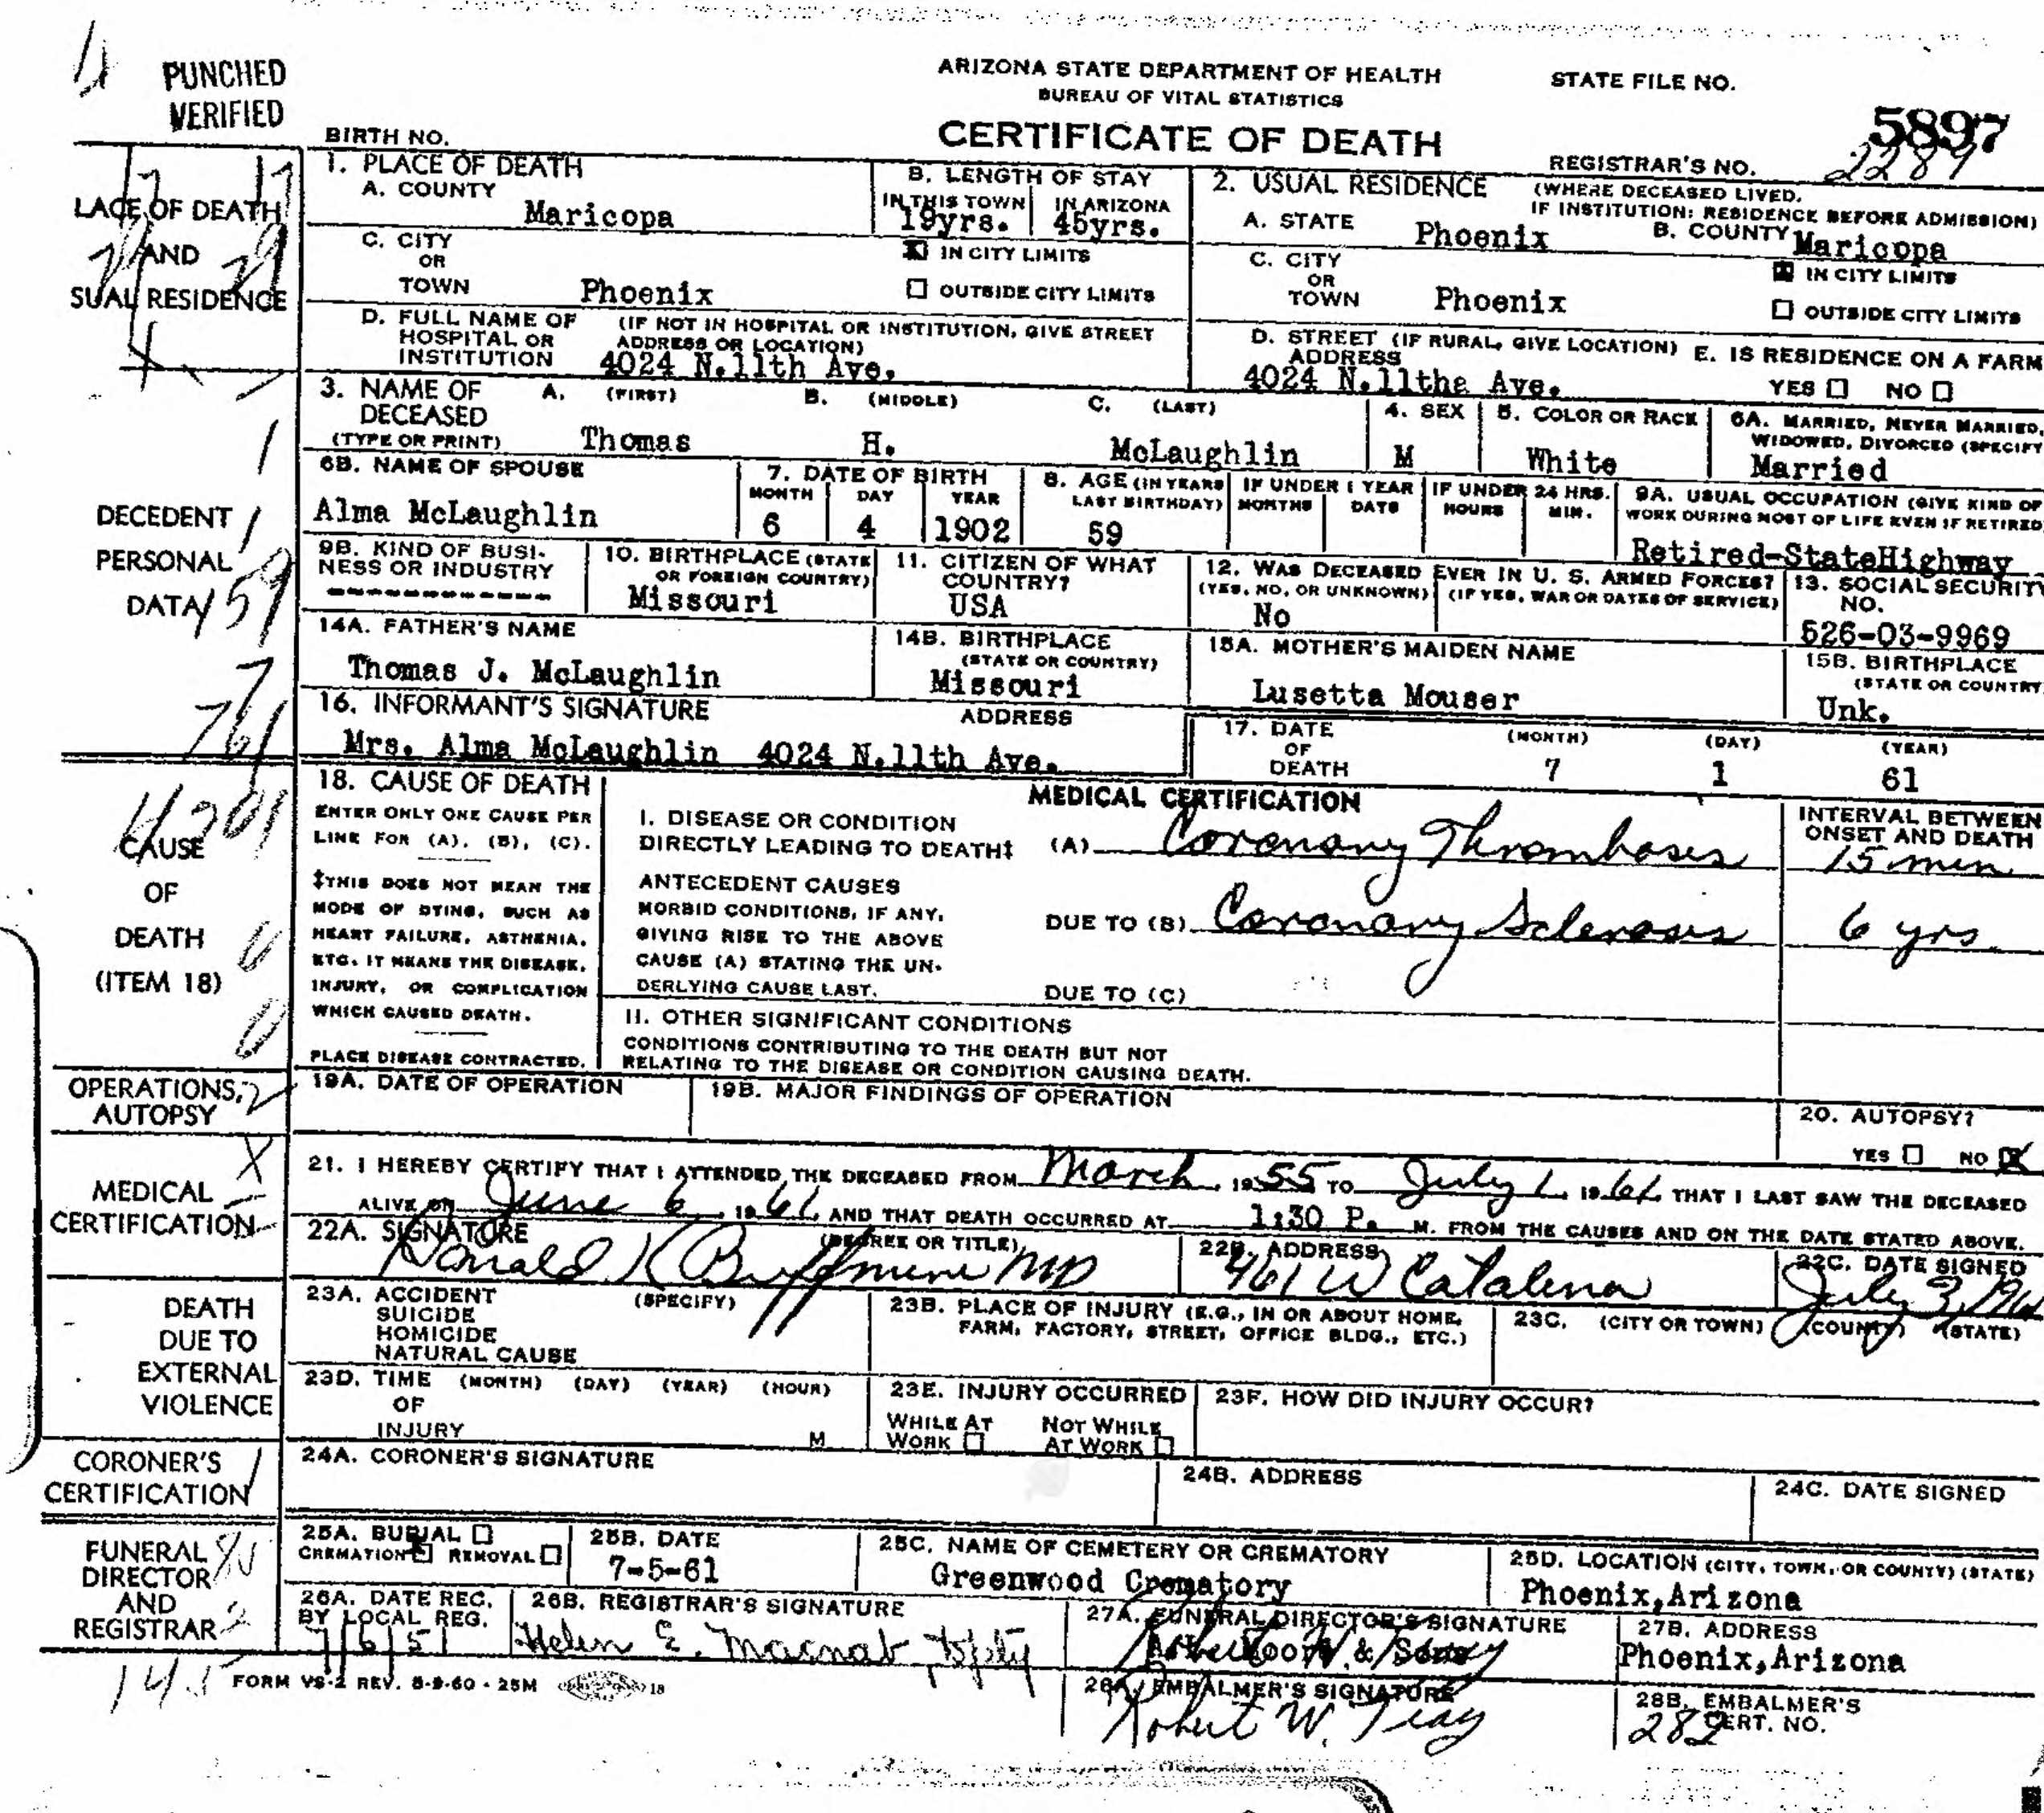 PUNCHED
VERIFIED
ARIZONA STATE DEPARTMENT OF HEALTH
BUREAU OF VITAL STATISTICS
CERTIFICATE OF DEATH
STATE FILE NO.
5897
BIRTH NO.
REGISTRAR'S NO. 2289
LACE OF DEATH
AND
SUAL RESIDENCE
1. PLACE OF DEATH
A. COUNTY
Maricopa
B. LENGTH OF STAY
IN THIS TOWN IN ARIZONA
19yrs. 45yrs.
2. USUAL RESIDENCE (WHERE DECEASED LIVED.
IF INSTITUTION: RESIDENCE BEFORE ADMISSION)
A. STATE Phoenix B. COUNTY Maricopa
C. CITY
OR
TOWN Phoenix
IN CITY LIMITS
OUTSIDE CITY LIMITS
C. CITY
OR
TOWN Phoenix
IN CITY LIMITS
OUTSIDE CITY LIMITS
D. FULL NAME OF
HOSPITAL OR
INSTITUTION
(IF NOT IN HOSPITAL OR INSTITUTION, GIVE STREET
ADDRESS OR LOCATION)
4024 N.11th Ave.
D. STREET (IF RURAL, GIVE LOCATION)
ADDRESS
4024 N.11tha Ave.
E. IS RESIDENCE ON A FARM
YES NO
DECEDENT
PERSONAL
DATA
3. NAME OF
DECEASED
(TYPE OR PRINT)
A. (FIRST) B. (MIDDLE) C. (LAST)
Thomas H. McLaughlin
4. SEX
M
5. COLOR OR RACE
White
6A. MARRIED, NEVER MARRIED,
WIDOWED, DIVORCED (SPECIFY
Married
6B. NAME OF SPOUSE
Alma McLaughlin
7. DATE OF BIRTH
MONTH DAY YEAR
6 4 1902
8. AGE (IN YEARS
LAST BIRTHDAY)
59
IF UNDER 1 YEAR
MONTHS DAYS
IF UNDER 24 HRS.
HOURS MIN.
9A. USUAL OCCUPATION (GIVE KIND OF
WORK DURING MOST OF LIFE EVEN IF RETIRED
Retired-StateHighway
9B. KIND OF BUSI-
NESS OR INDUSTRY
10. BIRTHPLACE (STATE
OR FOREIGN COUNTRY)
Missouri
11. CITIZEN OF WHAT
COUNTRY?
USA
12. WAS DECEASED EVER IN U. S. ARMED FORCES?
(YES, NO, OR UNKNOWN) (IF YES, WAR OR DATES OF SERVICE)
No
13. SOCIAL SECURITY
NO.
526-03-9969
14A. FATHER'S NAME
Thomas J. McLaughlin
14B. BIRTHPLACE
(STATE OR COUNTRY)
Missouri
15A. MOTHER'S MAIDEN NAME
Lusetta Mouser
15B. BIRTHPLACE
(STATE OR COUNTRY
Unk.
16. INFORMANT'S SIGNATURE ADDRESS
Mrs. Alma McLaughlin 4024 N.11th Ave.
17. DATE
OF
DEATH
(MONTH) (DAY) (YEAR)
7 1 61
CAUSE
OF
DEATH
(ITEM 18)
18. CAUSE OF DEATH
ENTER ONLY ONE CAUSE PER
LINE FOR (A), (B), (C).
‡THIS DOES NOT MEAN THE
MODE OF DYING, SUCH AS
HEART FAILURE, ASTHENIA,
ETC. IT MEANS THE DISEASE,
INJURY, OR COMPLICATION
WHICH CAUSED DEATH.
PLACE DISEASE CONTRACTED.
MEDICAL CERTIFICATION
I. DISEASE OR CONDITION
DIRECTLY LEADING TO DEATH‡ (A) Coronary Thrombosis
INTERVAL BETWEEN
ONSET AND DEATH
15 min
ANTECEDENT CAUSES
MORBID CONDITIONS, IF ANY,
GIVING RISE TO THE ABOVE
CAUSE (A) STATING THE UN-
DERLYING CAUSE LAST.
DUE TO (B) Coronary Sclerosis 6 yrs
DUE TO (C)
II. OTHER SIGNIFICANT CONDITIONS
CONDITIONS CONTRIBUTING TO THE DEATH BUT NOT
RELATING TO THE DISEASE OR CONDITION CAUSING DEATH.
OPERATIONS,
AUTOPSY
19A. DATE OF OPERATION
19B. MAJOR FINDINGS OF OPERATION
20. AUTOPSY?
YES NO
MEDICAL
CERTIFICATION
21. I HEREBY CERTIFY THAT I ATTENDED THE DECEASED FROM March, 1955 TO July 1, 1961, THAT I LAST SAW THE DECEASED
ALIVE ON June 6, 1961, AND THAT DEATH OCCURRED AT 1:30 P. M. FROM THE CAUSES AND ON THE DATE STATED ABOVE.
22A. SIGNATURE (DEGREE OR TITLE)
Donald K Buffmire MD
22B. ADDRESS
461 W Catalina
22C. DATE SIGNED
July 3, 1961
DEATH
DUE TO
EXTERNAL
VIOLENCE
23A. ACCIDENT (SPECIFY)
SUICIDE
HOMICIDE
NATURAL CAUSE
23B. PLACE OF INJURY (E.G., IN OR ABOUT HOME,
FARM, FACTORY, STREET, OFFICE BLDG., ETC.)
23C. (CITY OR TOWN) (COUNTY) (STATE)
23D. TIME (MONTH) (DAY) (YEAR) (HOUR)
OF
INJURY M
23E. INJURY OCCURRED
WHILE AT NOT WHILE
WORK AT WORK
23F. HOW DID INJURY OCCUR?
CORONER'S
CERTIFICATION
24A. CORONER'S SIGNATURE
24B. ADDRESS
24C. DATE SIGNED
FUNERAL
DIRECTOR
AND
REGISTRAR
25A. BURIAL
CREMATION REMOVAL
25B. DATE
7-5-61
25C. NAME OF CEMETERY OR CREMATORY
Greenwood Crematory
25D. LOCATION (CITY, TOWN, OR COUNTY) (STATE)
Phoenix,Arizona
26A. DATE REC.
BY LOCAL REG.
26B. REGISTRAR'S SIGNATURE
Helen E. Macnab
27A. FUNERAL DIRECTOR'S SIGNATURE
Moore & Sons
27B. ADDRESS
Phoenix,Arizona
28A. EMBALMER'S SIGNATURE
Robert W.
28B. EMBALMER'S
CERT. NO.
282
FORM VS-2 REV. 5-9-60 - 25M 18